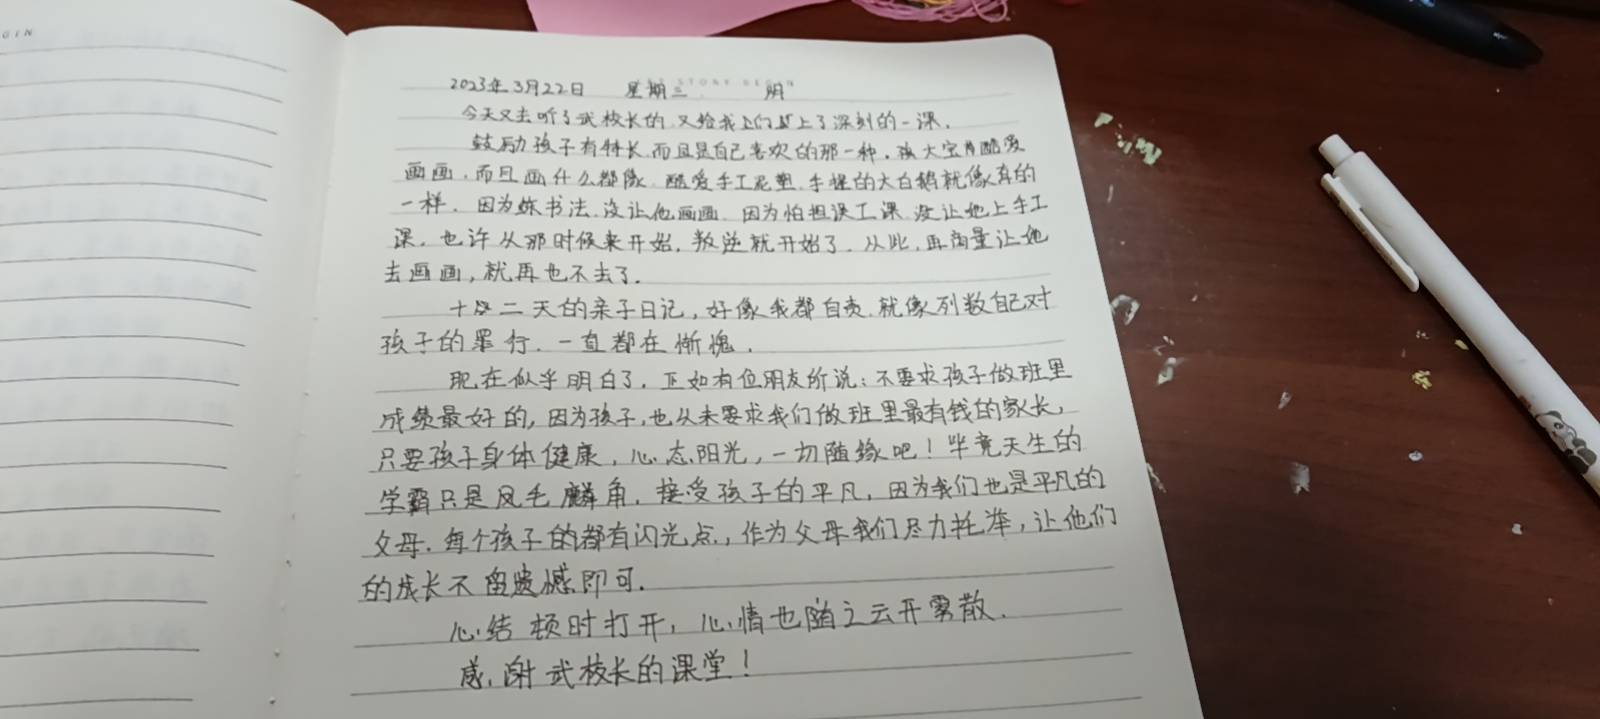 GIN
STORY BEGIN
2023年3月22日 星期三 阴
今天又去听了武校长的,又给我们上了深刻的一课.
鼓励孩子有特长,而且是自己喜欢的那一种.我大宝酷爱
画画.而且画什么都像.酷爱手工泥塑.手捏的大白鹅就像真的
一样.因为练书法.没让他画画.因为怕担误工课.没让她上手工
课.也许从那时候来开始,叛逆就开始了.从此,再商量让她
去画画,就再也不去了.
十二天的亲子日记,好像我都自责.就像列数自己对
孩子的罪行.一直都在惭愧.
现在似乎明白了.正如有位朋友所说:不要求孩子做班里
成绩最好的,因为孩子,也从未要求我们做班里最有钱的家长,
只要孩子身体健康,心态阳光,一切随缘吧!毕竟天生的
学霸只是凤毛麟角.接受孩子的平凡,因为我们也是平凡的
父母.每个孩子的都有闪光点,作为父母我们尽力托举,让他们
的成长不留遗憾即可.
心结顿时打开,心情也随之云开雾散.
感谢武校长的课堂!